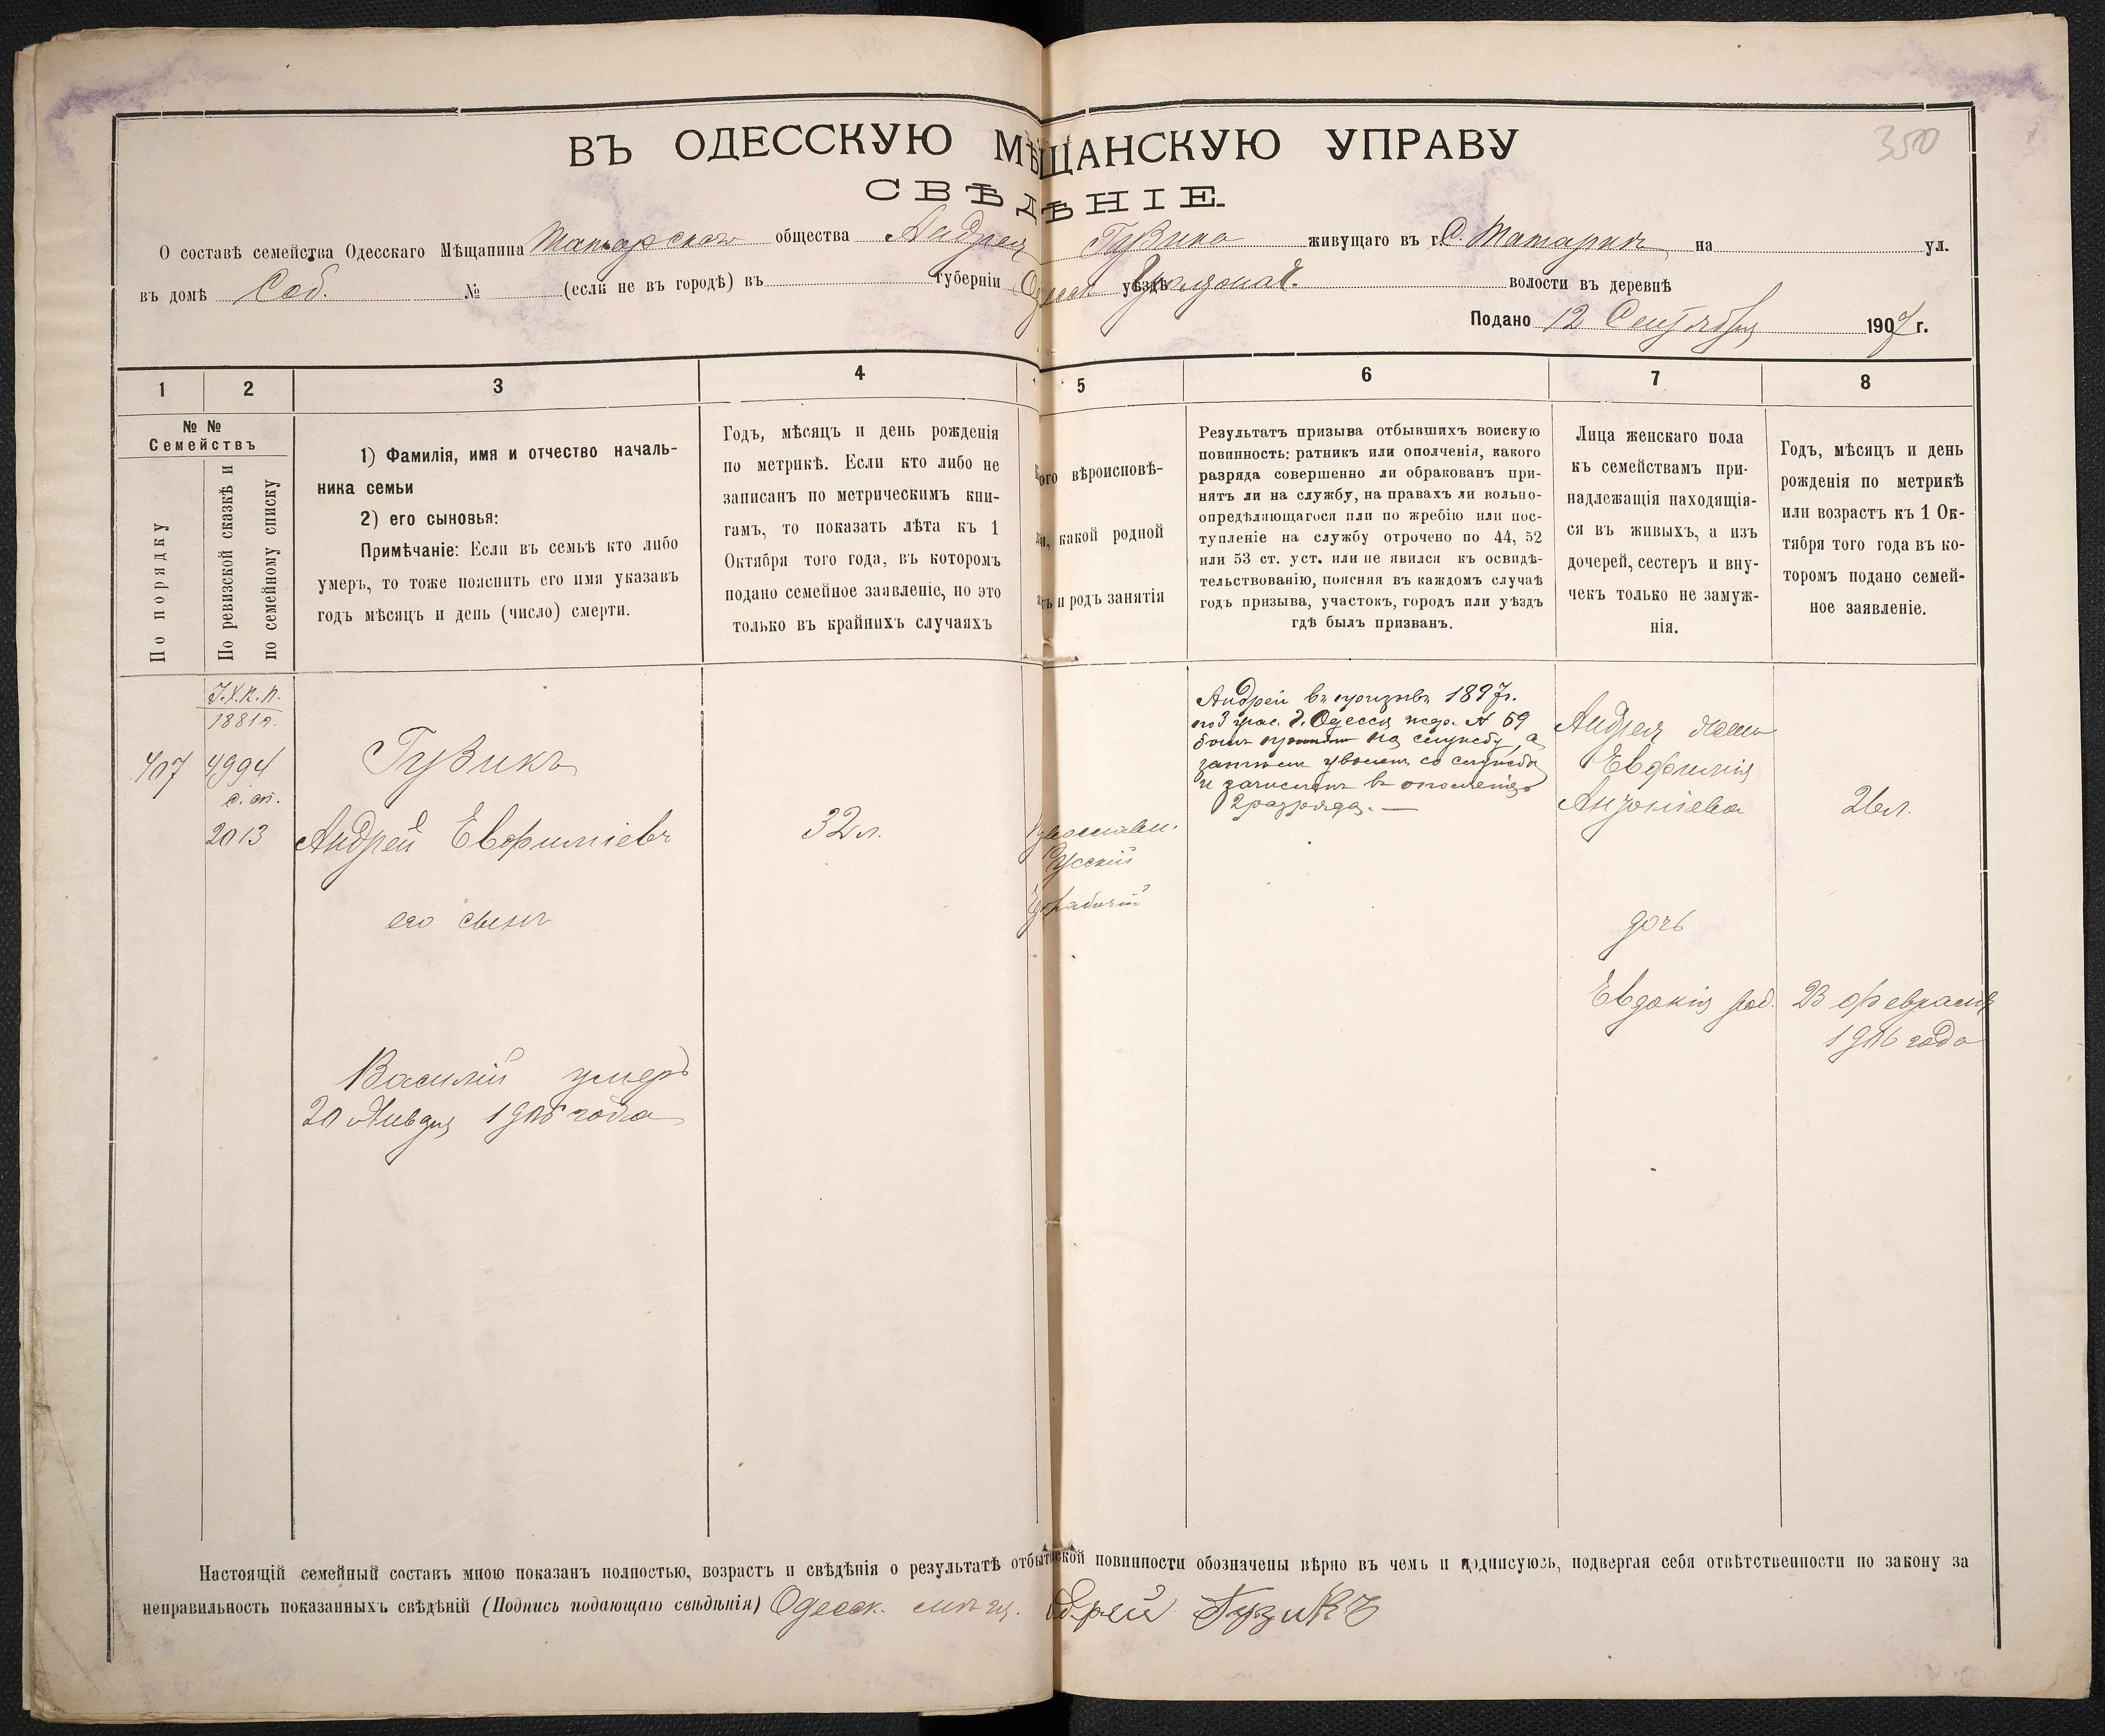 350
ВЪ ОДЕССКУЮ МѢЩАНСКУЮ УПРАВУ
СВѢДѢНІЕ
О составѣ семейства Одесскаго Мѣщанина Татарскаго общества Андрея Гузика живущаго въ г. С. Татаркѣ на ул.
въ домѣ Соб. № (если не въ городѣ) въ губерніи уѣздѣ волости въ деревнѣ
Подано 12 Сентября 1907 г.
1 2 3 4 5 6 7 8
№ №
Семействъ
По порядку
По ревизской сказкѣ и
по семейному списку
1) Фамилія, имя и отчество началь-
ника семьи
2) его сыновья:
Примѣчаніе: Если въ семьѣ кто либо
умеръ, то тоже пояснить его имя указавъ
годъ мѣсяцъ и день (число) смерти.
Годъ, мѣсяцъ и день рожденія
по метрикѣ. Если кто либо не
записанъ по метрическимъ кни-
гамъ, то показать лѣта къ 1
Октября того года, въ которомъ
подано семейное заявленіе, но это
только въ крайнихъ случаяхъ
вѣроисповѣ-
какой родной
и родъ занятія
Результатъ призыва отбывшихъ воискую
повинность: ратникъ или ополченія, какого
разряда совершенно ли обракованъ при-
нятъ ли на службу, на правахъ ли вольно-
опредѣляющагося или по жребію или пос-
тупленіе на службу отрочено по 44, 52
или 53 ст. уст. или не явился къ освидѣ-
тельствованію, поясняя въ каждомъ случаѣ
годъ призыва, участокъ, городъ или уѣздъ
гдѣ былъ призванъ.
Лица женскаго пола
къ семействамъ при-
надлежащія находящія-
ся въ живыхъ, а изъ
дочерей, сестеръ и вну-
чекъ только не замуж-
нія.
Годъ, мѣсяцъ и день
рожденія по метрикѣ
или возрастъ къ 1 Ок-
тября того года въ ко-
торомъ подано семей-
ное заявленіе.
1881г.
407 4994
с. сп.
2013
Гузикъ
Андрей Евфиміевъ
32 л.
его сынъ
Василій умеръ
20 Января года
Русскій
Андрей въ призывѣ 1897г.
по 3 учас. г. Одессы жер. № 69
былъ принятъ на службу, а
затѣмъ уволенъ со службы
и зачисленъ въ ополченіе
2 разряда. —
Андрея жена
Евфимія
Антоніева
26 л.
дочь
Евдокія род. 23 февраля
1906 года
Настоящій семейный составъ мною показанъ полностью, возрастъ и свѣдѣнія о результатѣ повинности обозначены вѣрно въ чемъ и подписуюсь, подвергая себя отвѣтственности по закону за
неправильность показанныхъ свѣдѣній (Подпись подающаго свѣдѣнія) Одесск. мѣщ. Гузикъ